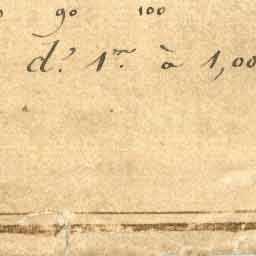 90 100
d.° 1.m à 1,00